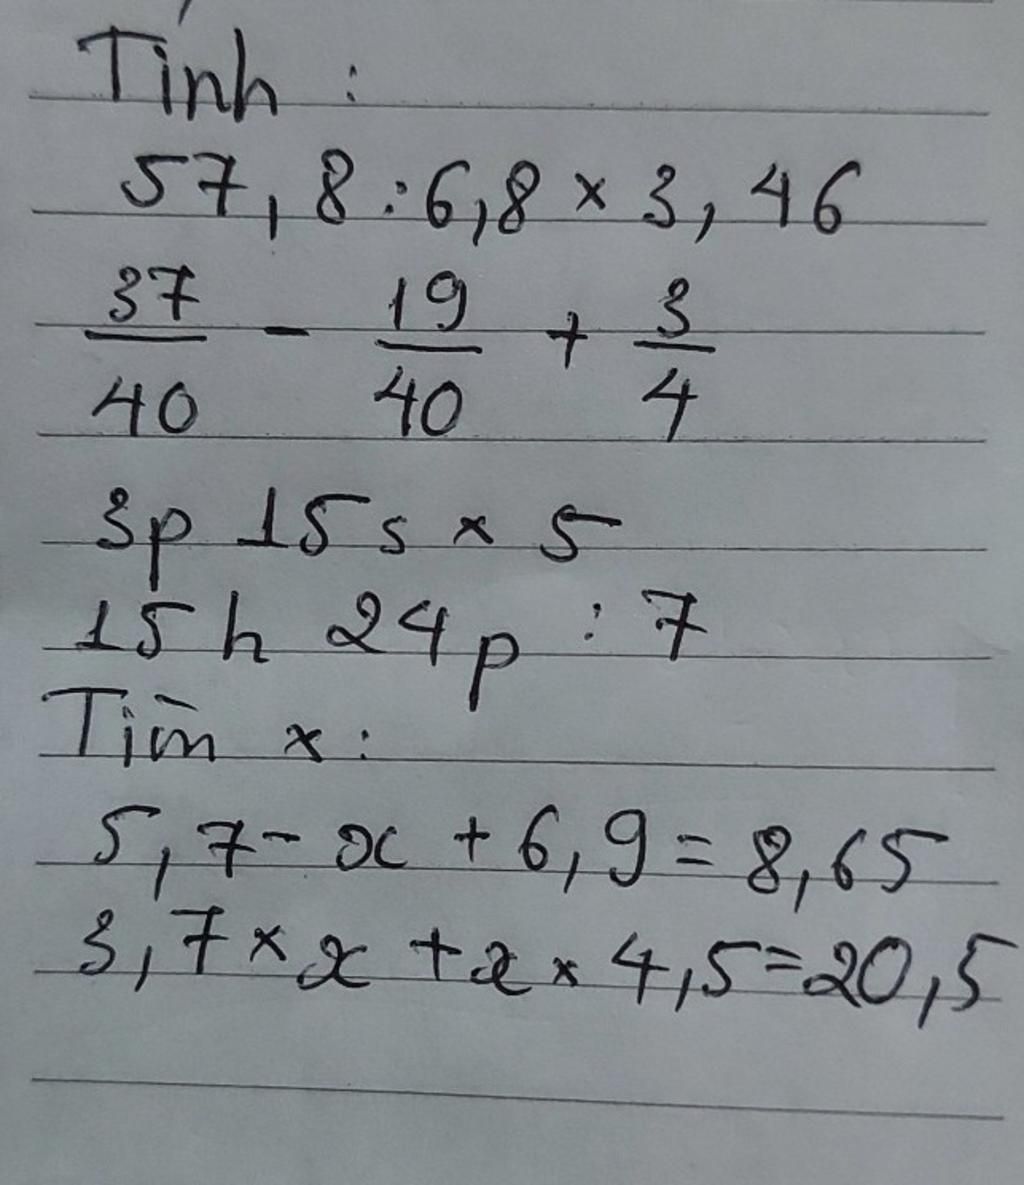 Tính :
57,8 : 6,8 × 3,46
37/40 - 19/40 + 3/4
3p 15s × 5
15h 24p : 7
Tìm x :
5,7 - x + 6,9 = 8,65
3,7 × x + x × 4,5 = 20,5